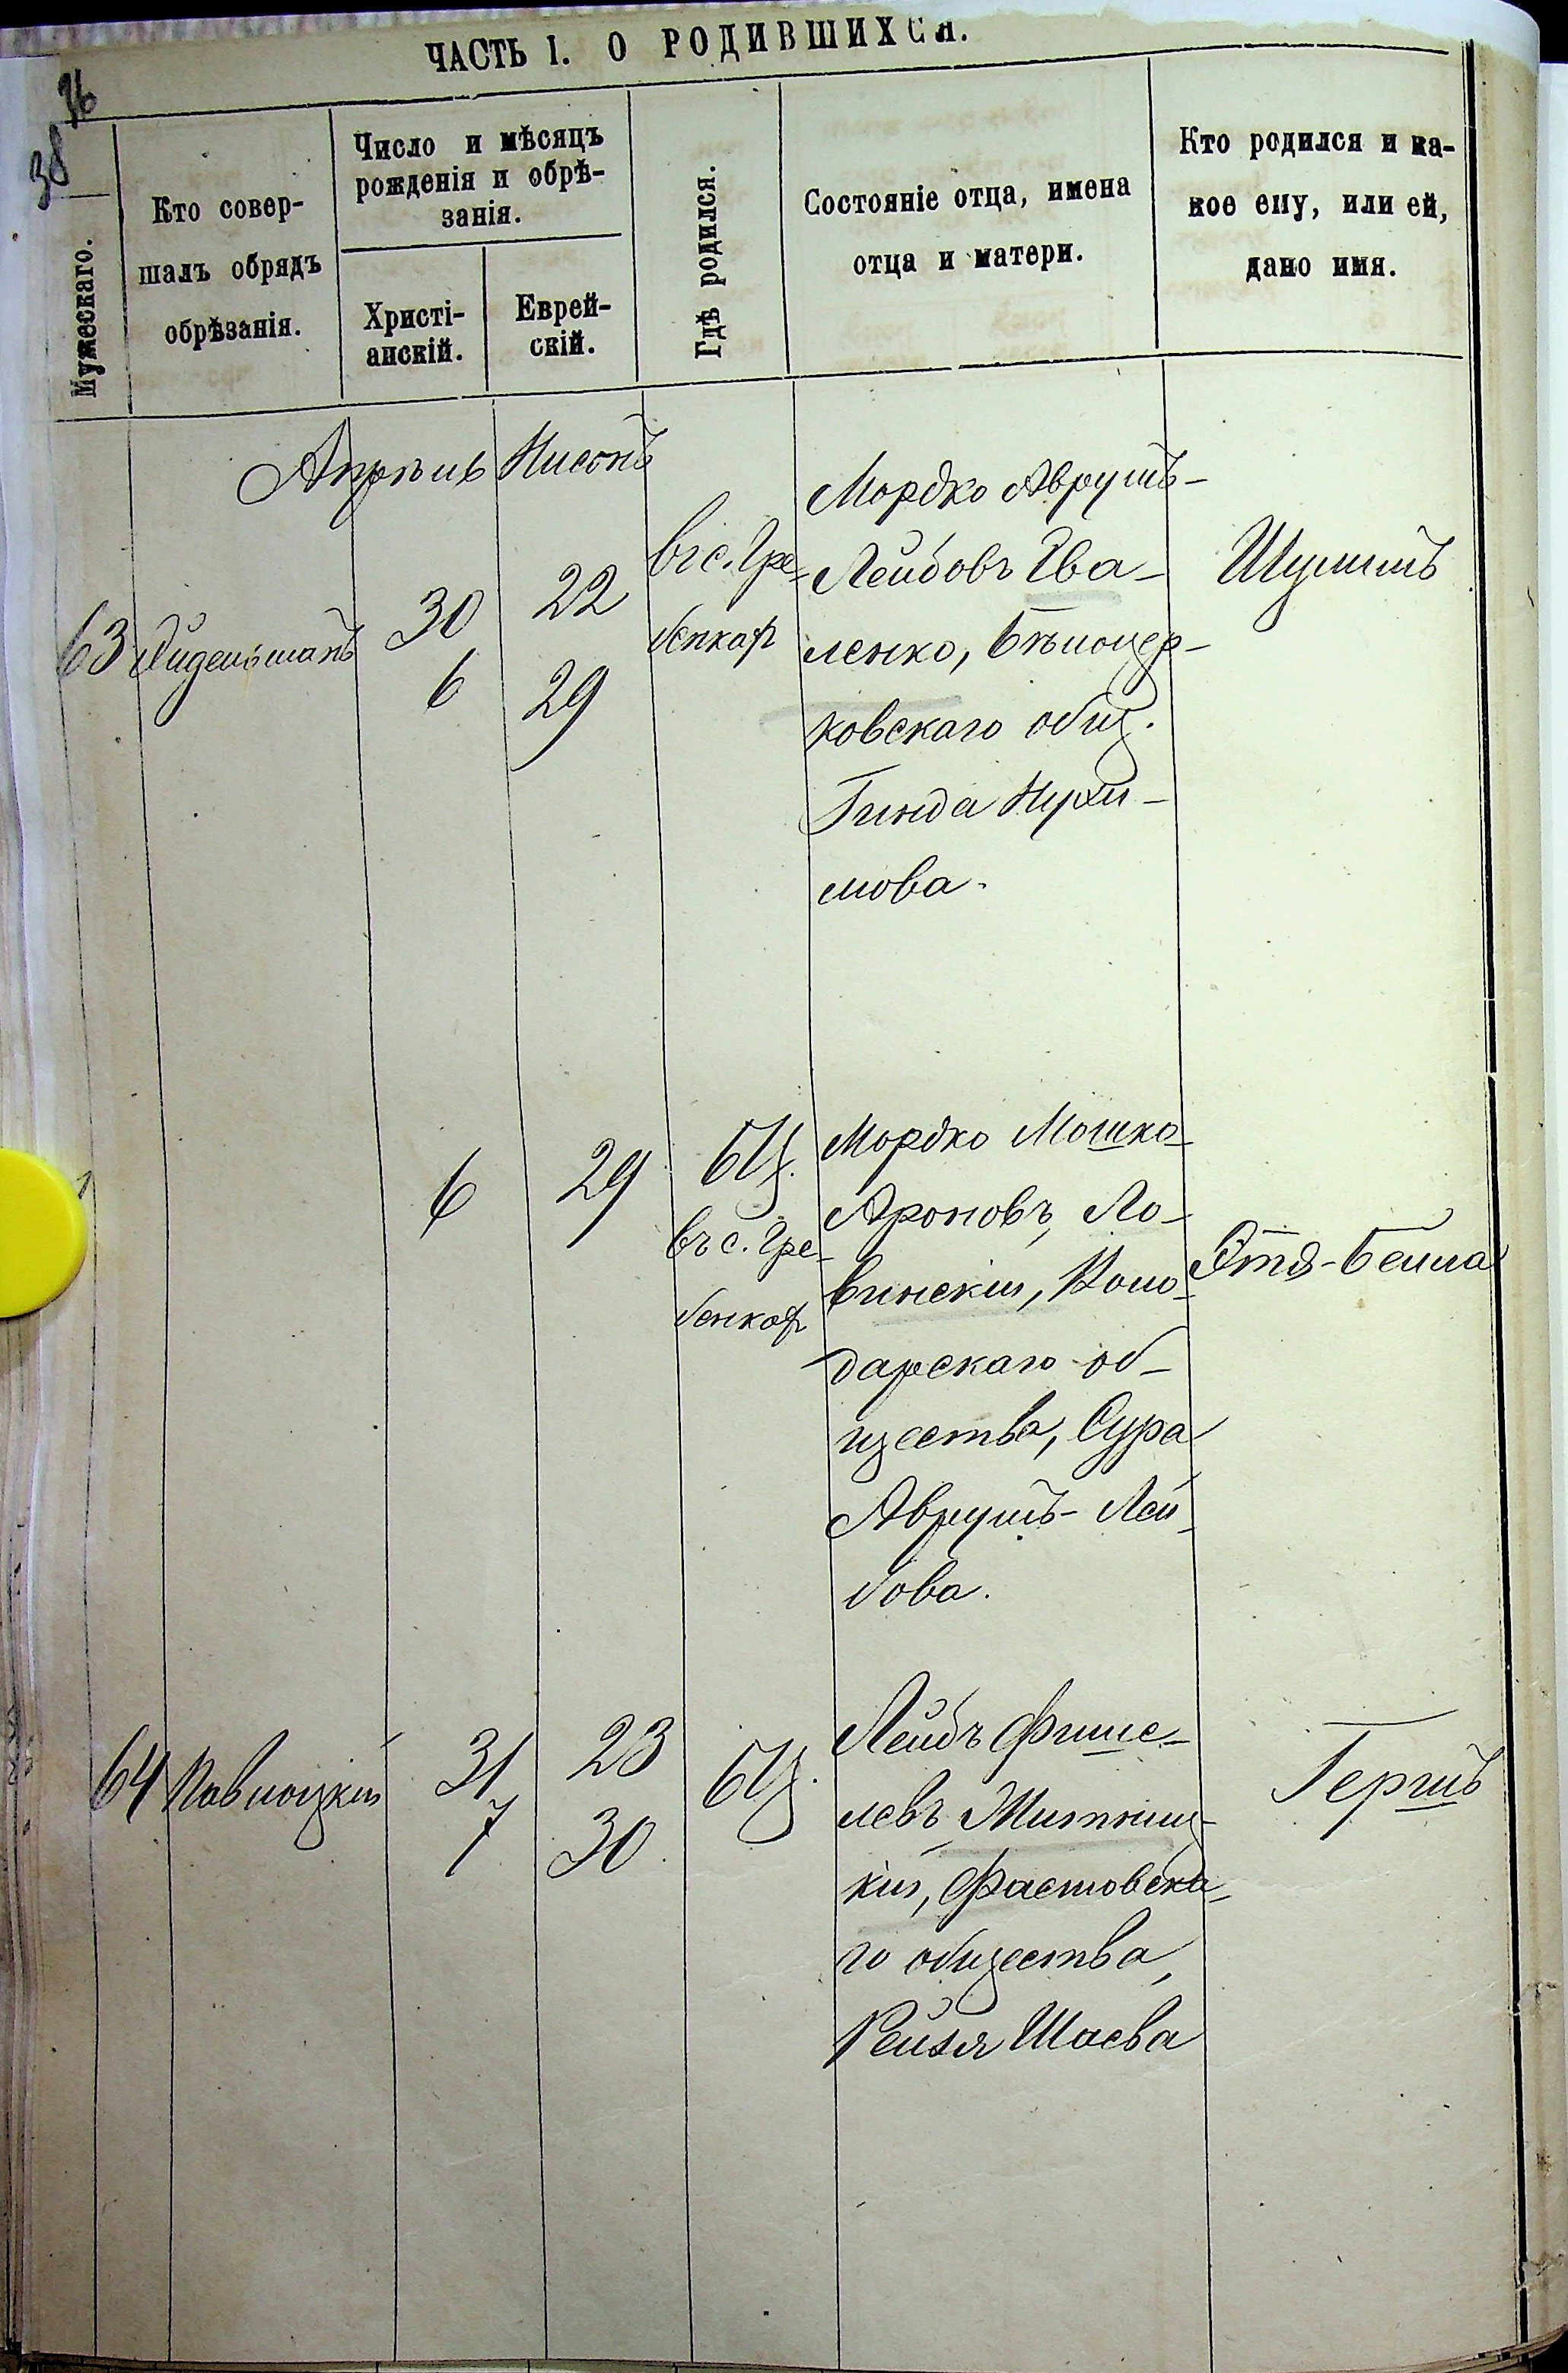 ЧАСТЬ I. О РОДИВШИХСЯ.
38
Мужескаго.
Кто совер-
шалъ обрядъ
обрѣзанія.
Число и мѣсяцъ
рожденія и обрѣ-
занія.
Христі-
анскій.
Еврей-
скій.
Гдѣ родился.
Состояніе отца, имена
отца и матери.
Кто родился и ка-
кое ему, или ей,
дано имя.
Апрѣль Нисонъ
63
30
6
22
29
въ с. Гре-
бенках
Мордко Аврумъ-
Лейбовъ Гва-
ленко, Бѣлоцер-
ковскаго общ.
Гинда Нухи-
мова.
Шулимъ
6
29
БЦ.
въ с. Гре-
бенках
Мордко Мошко-
Ароновъ, Ло-
винскій, Воло-
дарскаго об-
щества, Сура
Аврумъ-Лей-
бова.
Этя-Бейла
64
Паволоцкій
31
7
23
30
БЦ.
Лейбъ Фише-
левъ Житниц-
кій, Фастовска-
го общества,
Рейзя Шаева
Гершъ